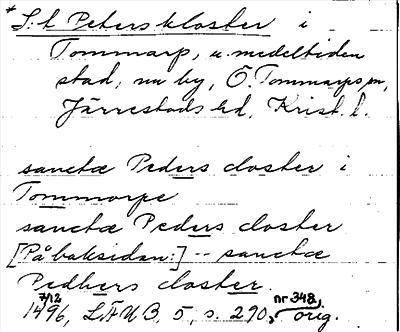 * S:t Peters kloster i
Tommarp, u. medeltiden
stad, nu by, Ö. Tommarps sn,
Järrestads hd, Krist. l.
sanctæ Peders closter i
Tommorpe
sanctæ Peders closter
[På baksidan:] -- sanctæ
Pedhers closter.
7/12 nr 348,
1496, LÄUB. 5, s. 290, orig.